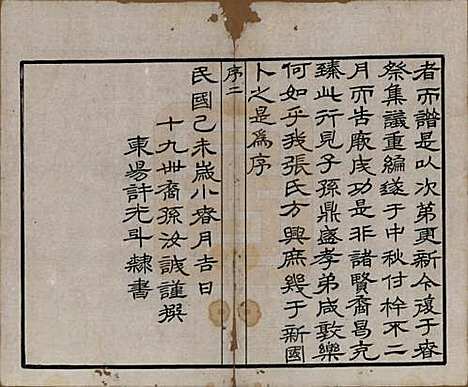 者而譜是以次第更新今復于春
祭集議重編遂于中秋付梓不二
月而告厥成功是非諸賢裔昌克
臻此行見子孫鼎盛孝弟咸敦樂
何如乎我張氏方興庶幾于新國
卜之是爲序
序二
民國己未歲小春月吉日
十九世裔孫汝誠謹撰
東昜許光斗隸書